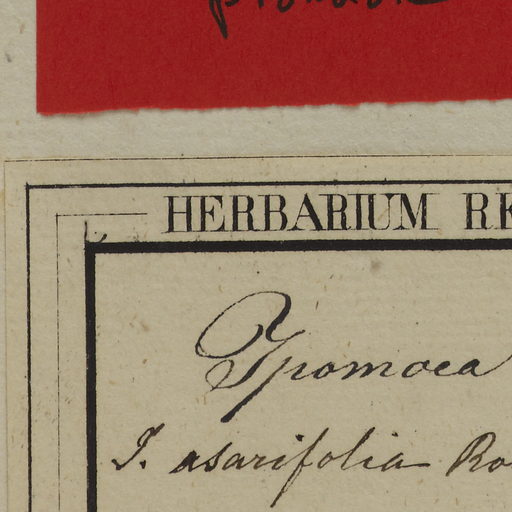 HERBARIUM RE
Ipomoea
I. asarifolia Ro